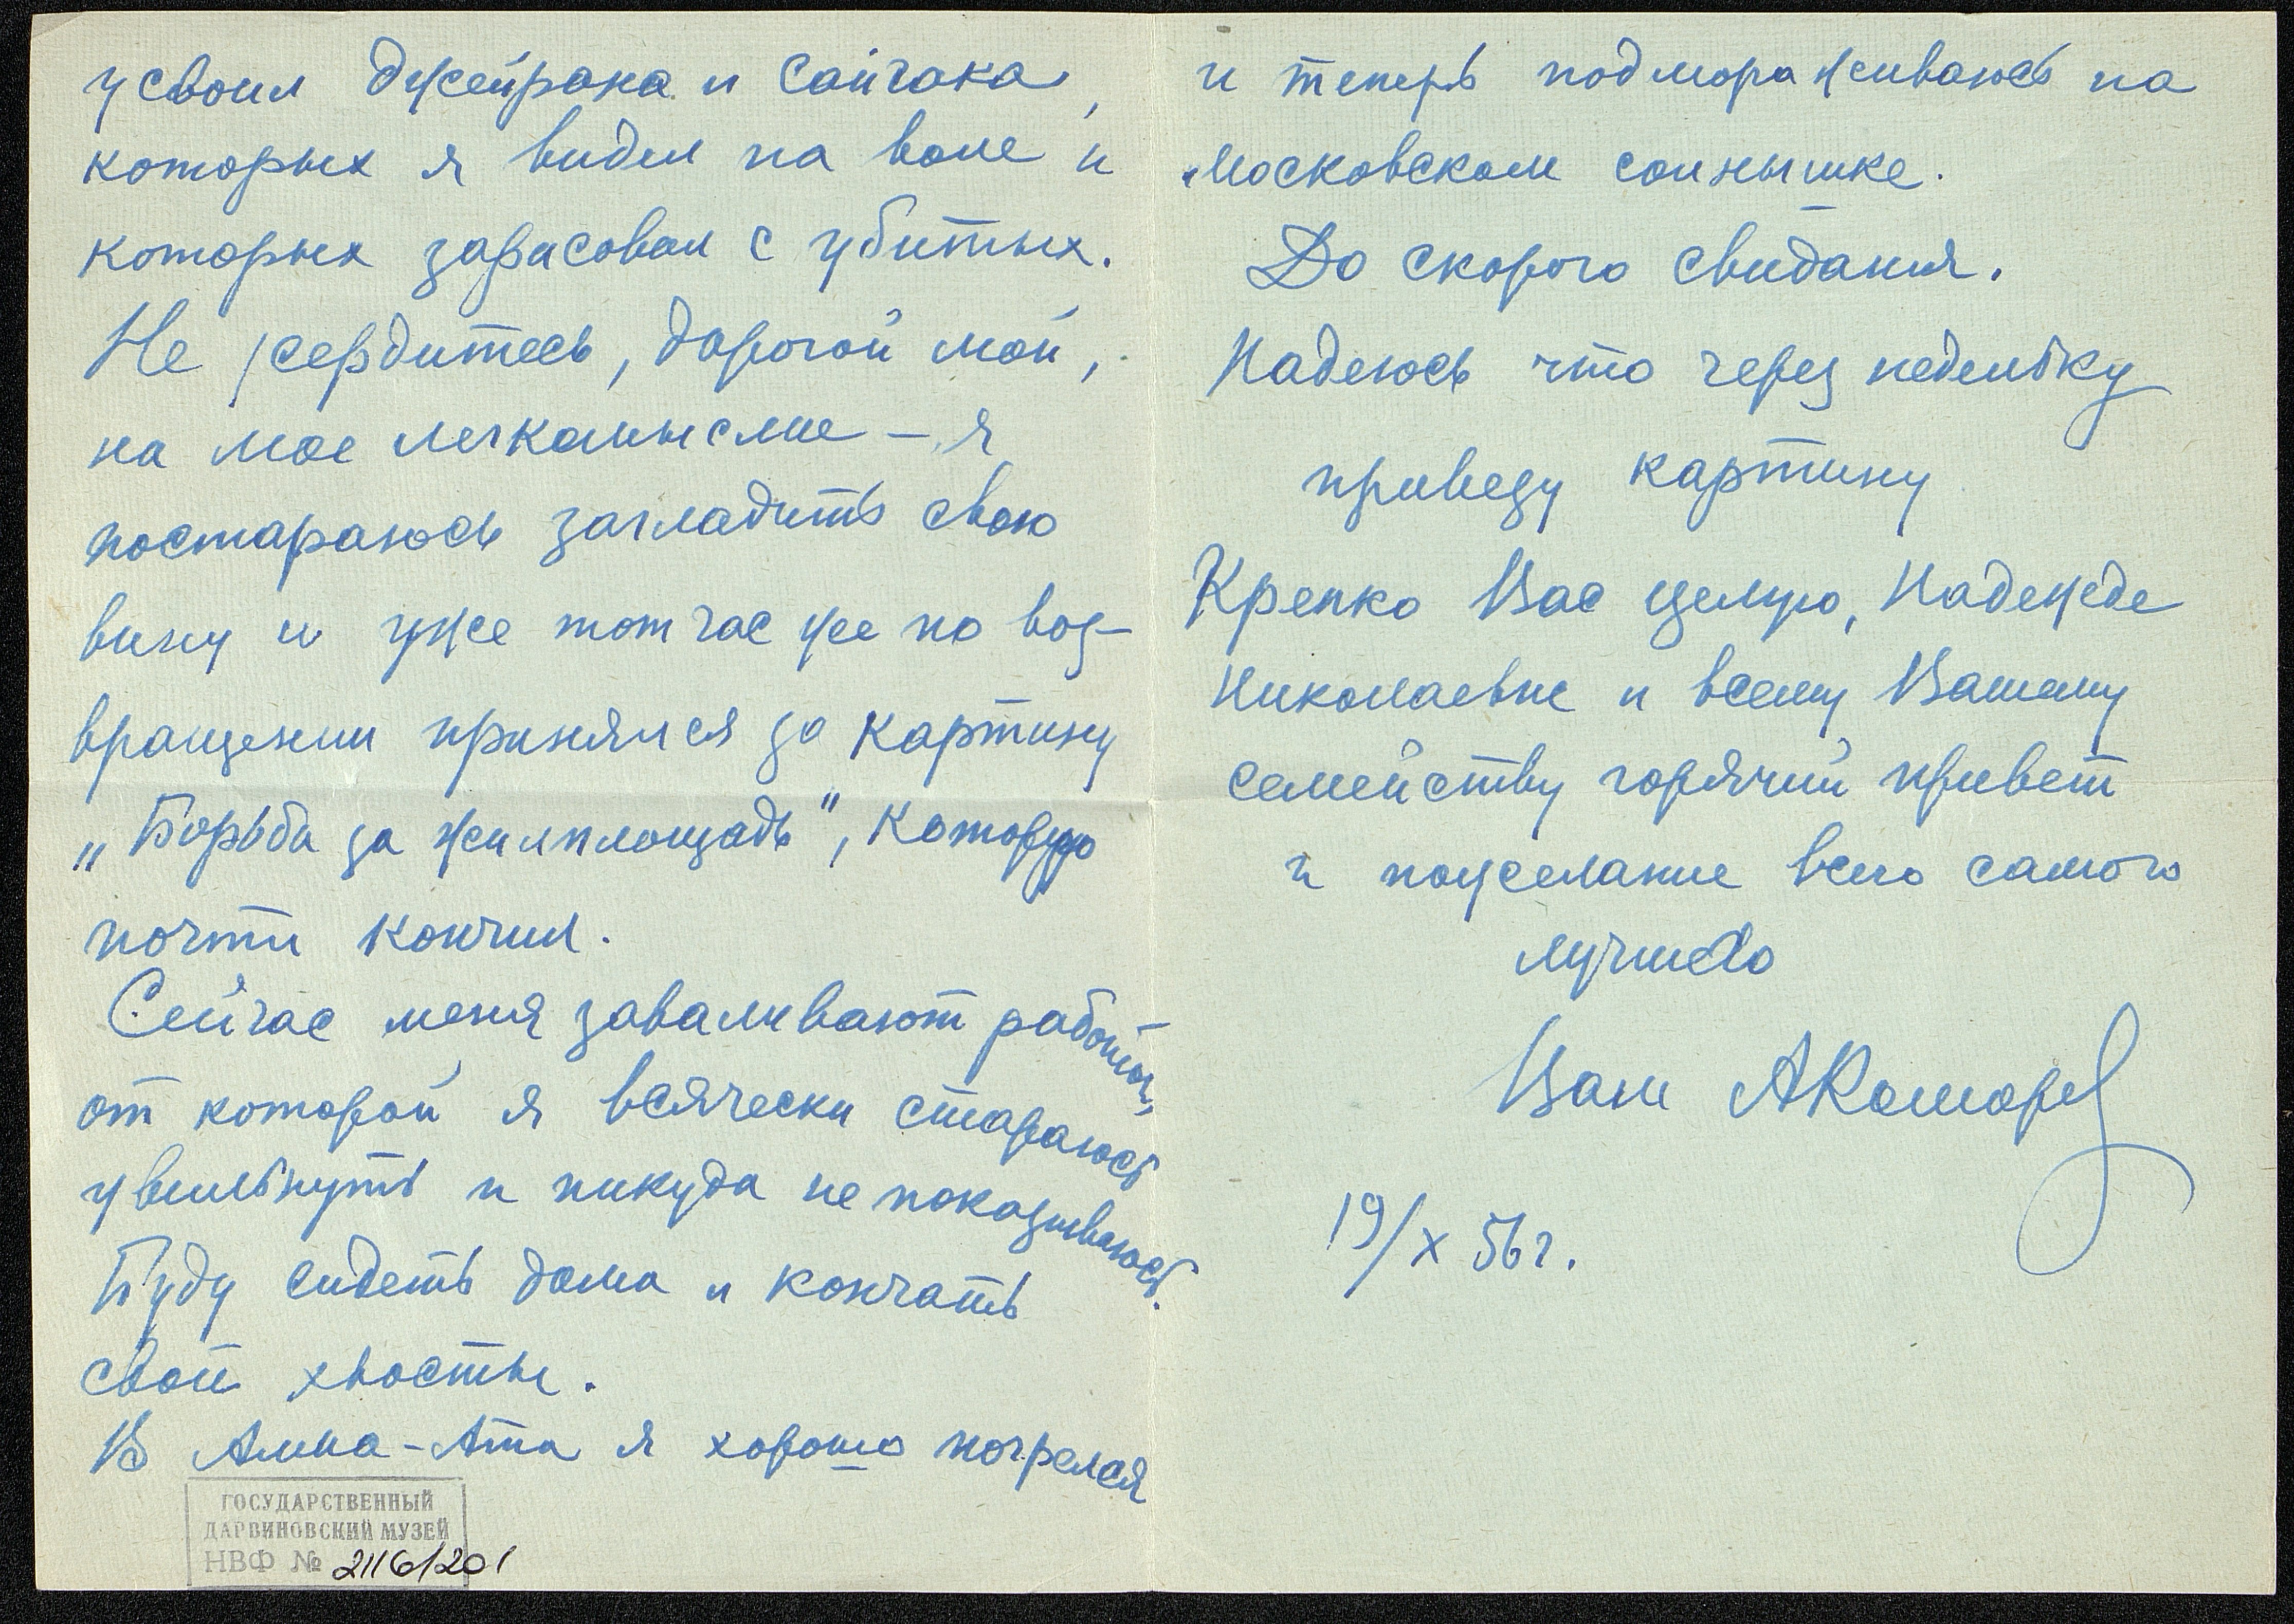 усвоил джейрана и сайгака,
которых я видел на воле и
которых зарисовал с убитых.
Не сердитесь, дорогой мой,
на мое легкомыслие – я
постараюсь загладить свою
вину и уже тотчас же по воз-
вращении принялся за картину
„Борьба за жилплощадь", которую
почти кончил.
Сейчас меня заваливают работой,
от которой я всячески стараюсь
увильнуть и никуда не показываюсь.
Буду сидеть дома и кончать
свои хвосты.
В Алма-Ата я хорошо погрелся
ГОСУДАРСТВЕННЫЙ
ДАРВИНОВСКИЙ МУЗЕЙ
НВФ № 2116/201
и теперь подмораживаюсь на
московском солнышке.
До скорого свидания.
Надеюсь что через недельку
привезу картину
Крепко Вас целую, Надежде
Николаевне и всему Вашему
семейству горячий привет
и пожелание всего самого
лучшего
Ваш АКомаров
19/X 56 г.